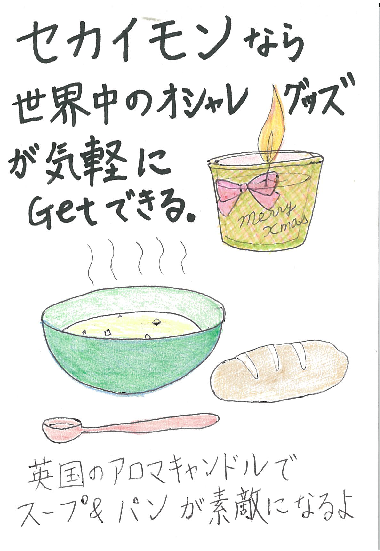 セカイモンなら
世界中のオシャレ グッズ
が気軽に
Getできる。
merry
xmas
英国のアロマキャンドルで
スープ&パンが素敵になるよ